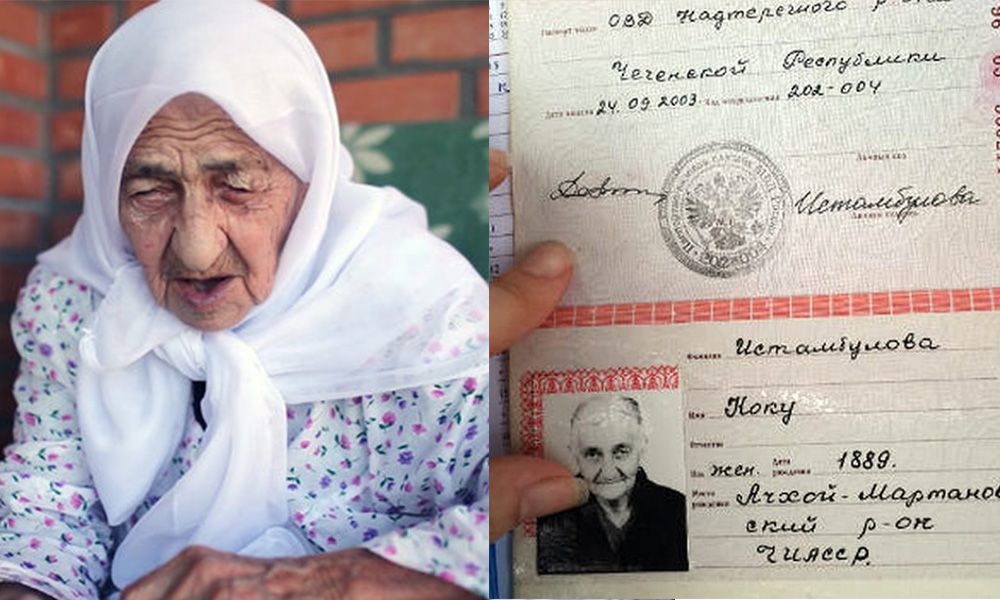 Паспорт выдан ОВД Надтеречного р-она
Чеченской Республики
Дата выдачи 24.09.2003. Код подразделения 202-004
Личный код
Истамбулова
Личная подпись
Фамилия Истамбулова
Имя Коку
Отчество
Пол жен. Дата рождения 1889.
Место рождения Ачхой-Мартанов
ский р-он
ЧИАССР.